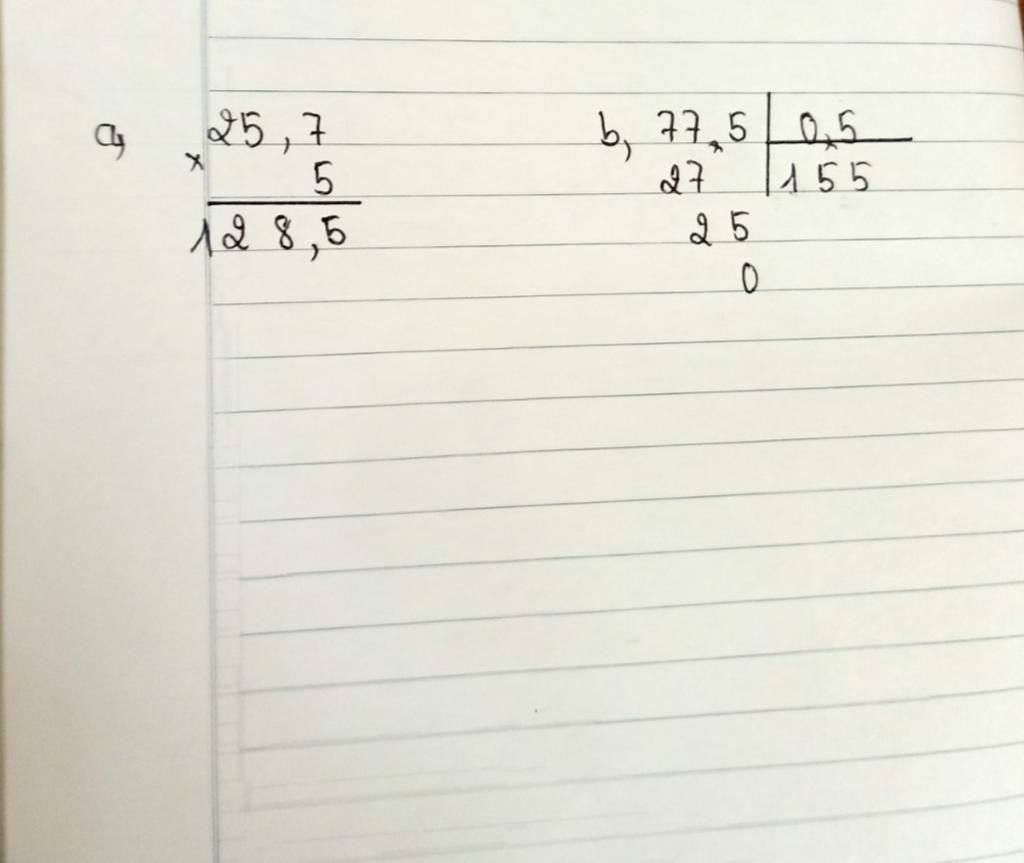 a, 25,7 b, 77,5 0,5
x 5 27 155
128,5 25
0